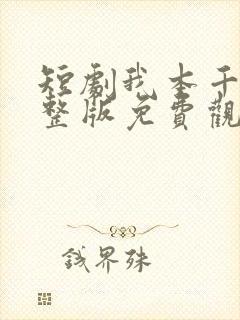 短劇我本千
整版免費觀
錢界殊